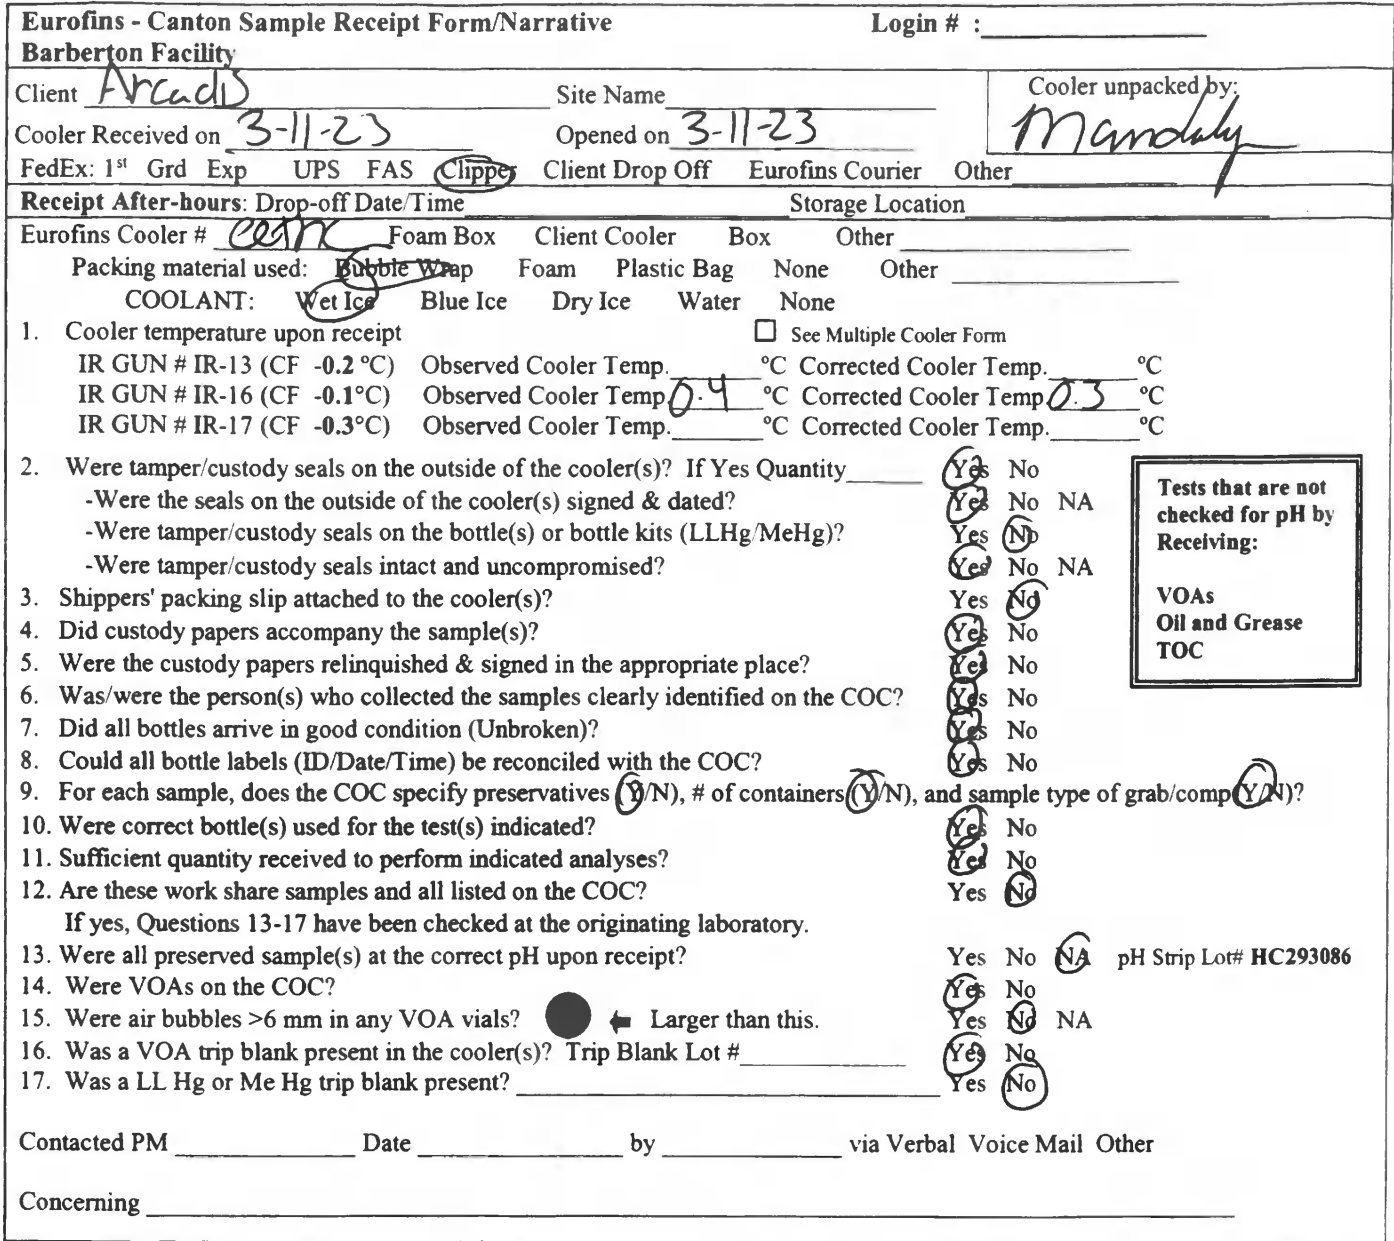 Eurofins - Canton Sample Receipt Form/Narrative Login # :
Barberton Facility
Client Arcadis Site Name Cooler unpacked by:
Cooler Received on 3-11-23 Opened on 3-11-23
FedEx: 1st Grd Exp UPS FAS Clipper Client Drop Off Eurofins Courier Other
Receipt After-hours: Drop-off Date/Time Storage Location
Eurofins Cooler # Foam Box Client Cooler Box Other
Packing material used: Bubble Wrap Foam Plastic Bag None Other
COOLANT: Wet Ice Blue Ice Dry Ice Water None
1. Cooler temperature upon receipt ☐ See Multiple Cooler Form
IR GUN # IR-13 (CF -0.2 °C) Observed Cooler Temp. °C Corrected Cooler Temp. °C
IR GUN # IR-16 (CF -0.1°C) Observed Cooler Temp. 0.4 °C Corrected Cooler Temp. 0.3 °C
IR GUN # IR-17 (CF -0.3°C) Observed Cooler Temp. °C Corrected Cooler Temp. °C
2. Were tamper/custody seals on the outside of the cooler(s)? If Yes Quantity Yes No
-Were the seals on the outside of the cooler(s) signed & dated? Yes No NA
-Were tamper/custody seals on the bottle(s) or bottle kits (LLHg/MeHg)? Yes No
-Were tamper/custody seals intact and uncompromised? Yes No NA
Tests that are not
checked for pH by
Receiving:
VOAs
Oil and Grease
TOC
3. Shippers' packing slip attached to the cooler(s)? Yes No
4. Did custody papers accompany the sample(s)? Yes No
5. Were the custody papers relinquished & signed in the appropriate place? Yes No
6. Was/were the person(s) who collected the samples clearly identified on the COC? Yes No
7. Did all bottles arrive in good condition (Unbroken)? Yes No
8. Could all bottle labels (ID/Date/Time) be reconciled with the COC? Yes No
9. For each sample, does the COC specify preservatives (Y/N), # of containers (Y/N), and sample type of grab/comp (Y/N)?
10. Were correct bottle(s) used for the test(s) indicated? Yes No
11. Sufficient quantity received to perform indicated analyses? Yes No
12. Are these work share samples and all listed on the COC? Yes No
If yes, Questions 13-17 have been checked at the originating laboratory.
13. Were all preserved sample(s) at the correct pH upon receipt? Yes No NA pH Strip Lot# HC293086
14. Were VOAs on the COC? Yes No
15. Were air bubbles >6 mm in any VOA vials? Larger than this. Yes No NA
16. Was a VOA trip blank present in the cooler(s)? Trip Blank Lot # Yes No
17. Was a LL Hg or Me Hg trip blank present? Yes No
Contacted PM Date by via Verbal Voice Mail Other
Concerning